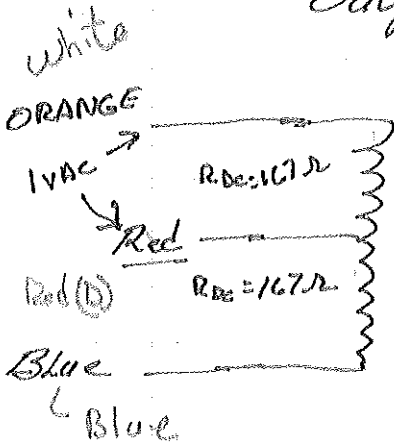 white
ORANGE
1VAC
RDC=167Ω
Red
Red(D)
RDC=167Ω
BLUE
Blue